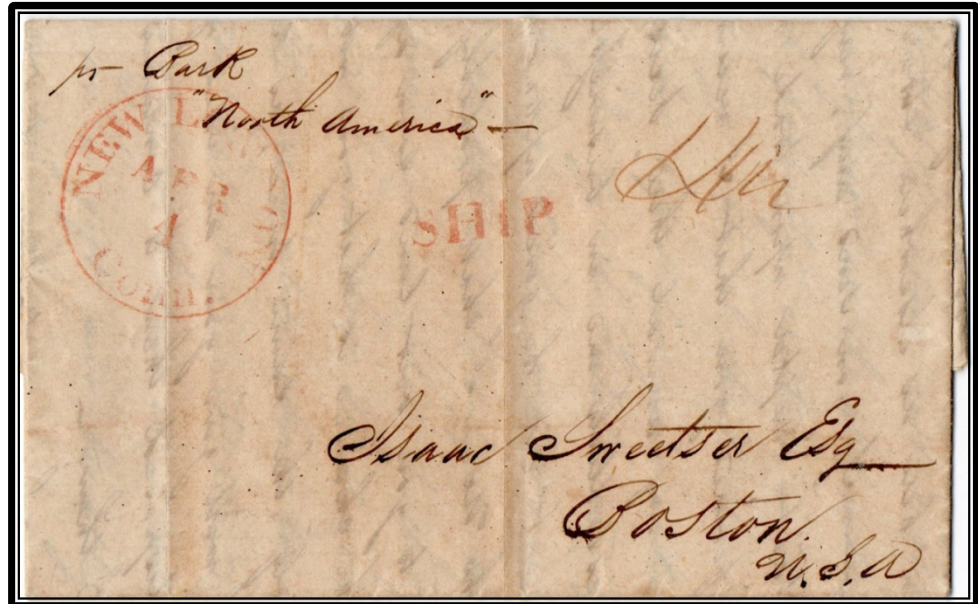 pr Bark
"North America" —
NEW LONDON
APR
1
Conn.
SHIP
Isaac Sweetser Esq
Boston.
U.S.A